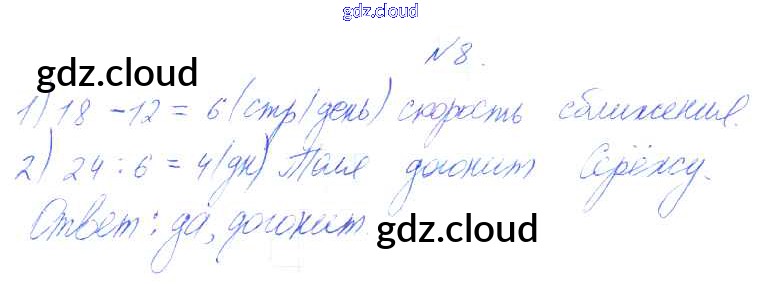 gdz.cloud
№8.
gdz.cloud
1) 18 - 12 = 6 (стр/день) скорость сближения.
2) 24 : 6 = 4 (дн) Толя догонит Серёжу.
Ответ: да, догонит.
gdz.cloud